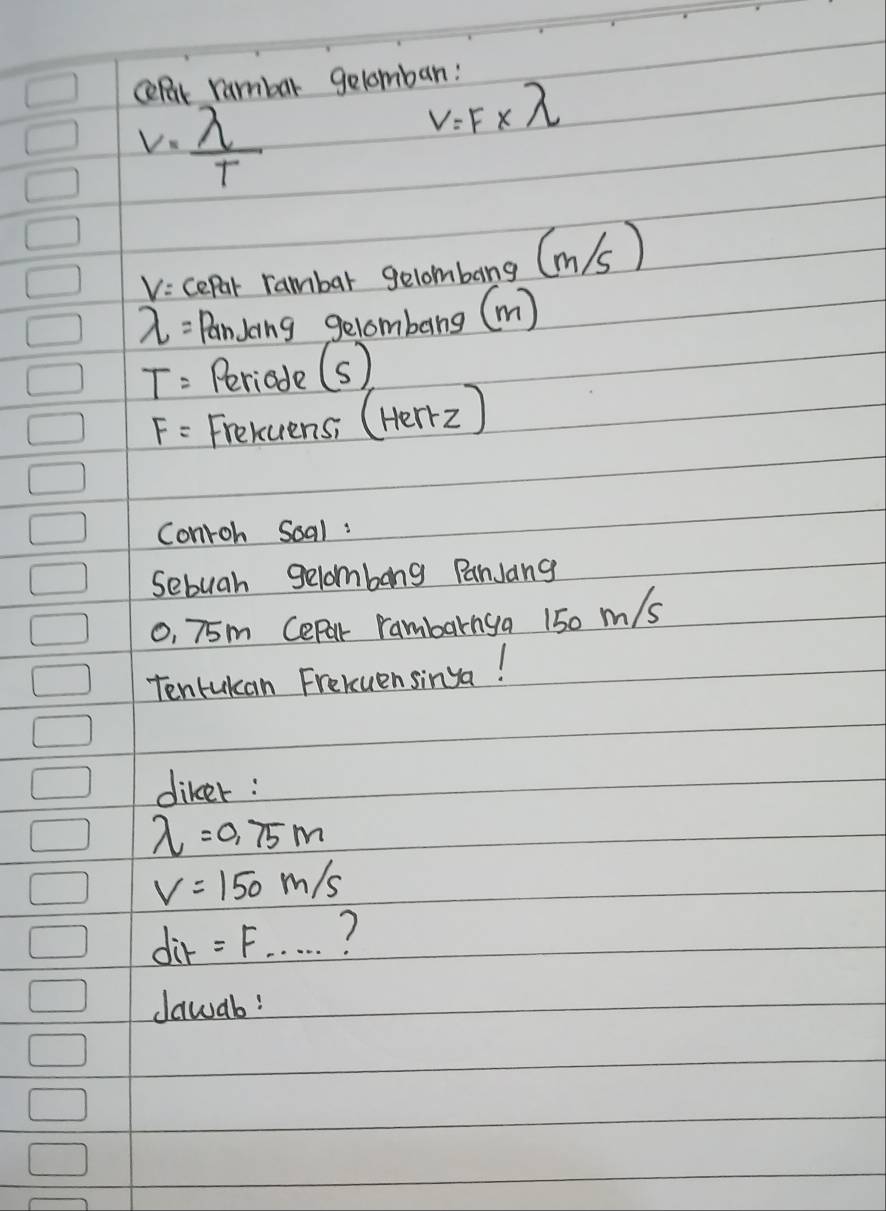 cepat rambat gelomban:
V = λ/T V = F × λ
V = cepat rambat gelombang (m/s)
λ = Panjang gelombang (m)
T = Periode (s)
F = Frekuensi (Hertz)
Contoh Soal :
Sebuah gelombang Panjang
0,75m cepat rambatnya 150 m/s
Tentukan Frekuensinya !
diket :
λ = 0,75 m
V = 150 m/s
dit = F.....?
Jawab :